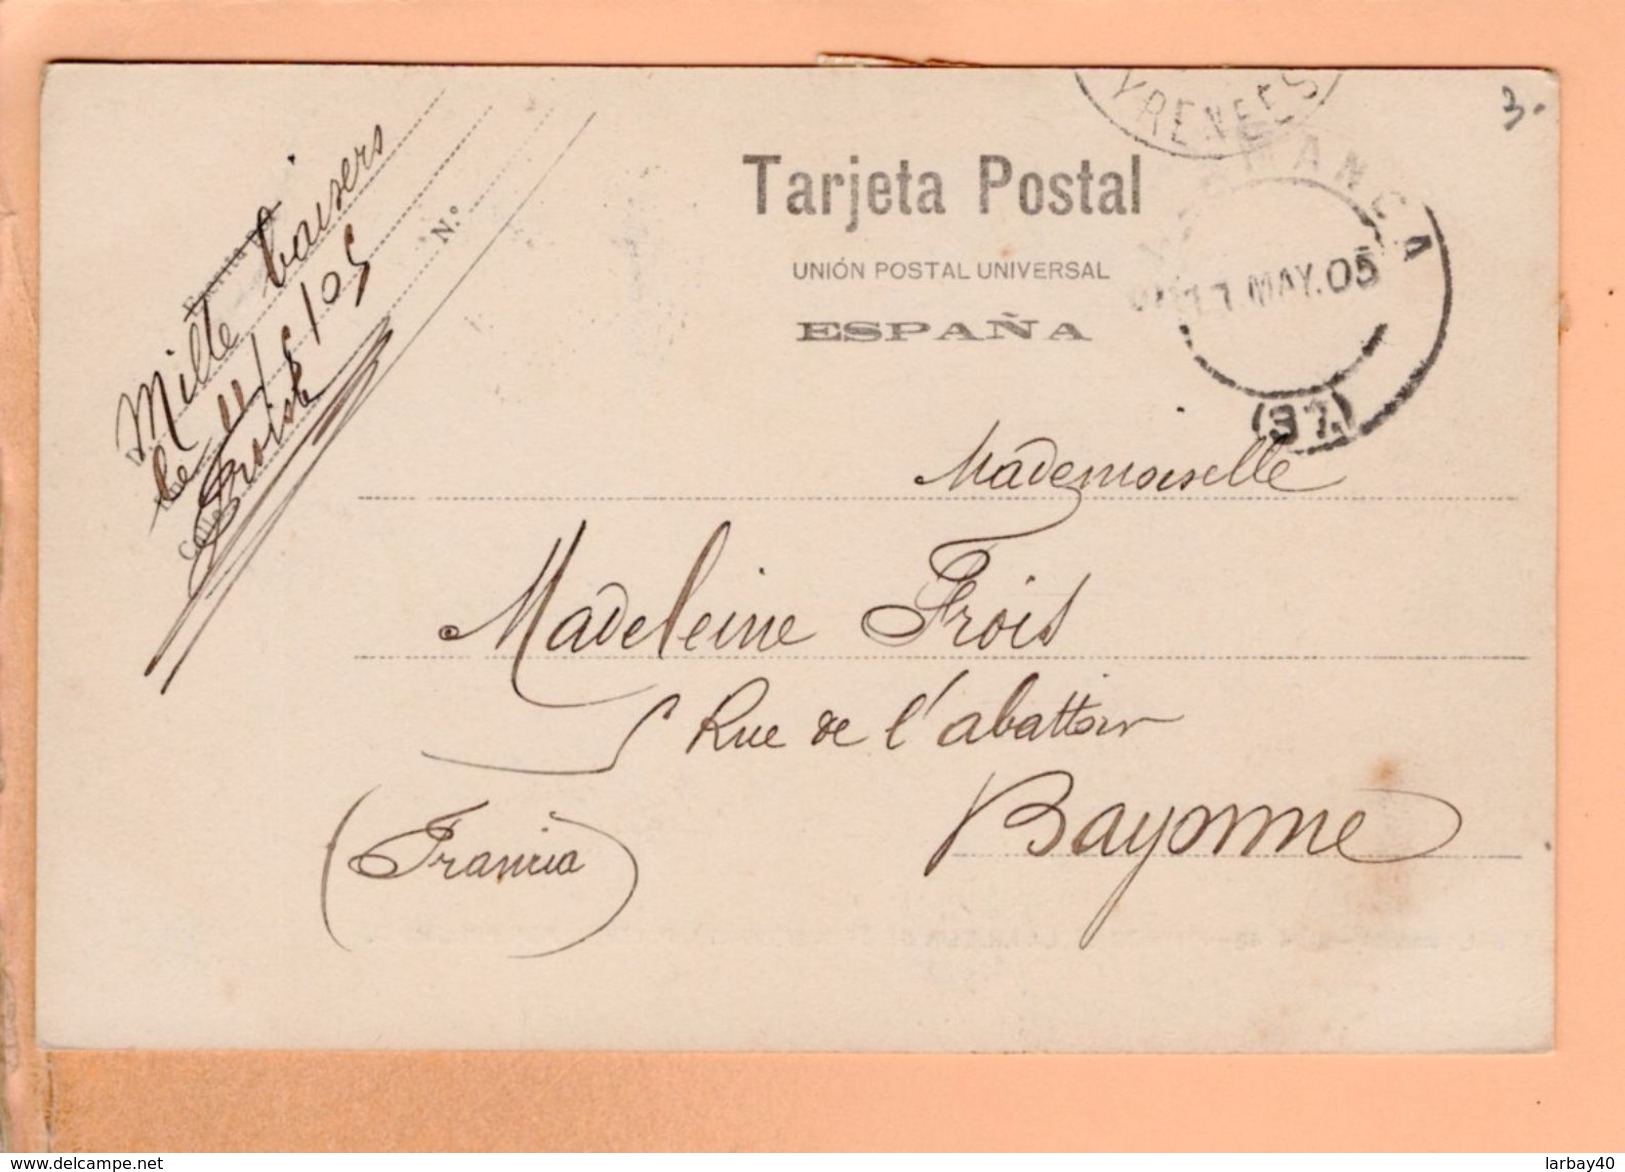 3.
YRENEES
Tarjeta Postal
UNIÓN POSTAL UNIVERSAL
ESPAÑA
MANCA
11 MAY.05
(37)
Mille baisers
le 11/5/05
N.º
Calle
Mademoiselle
Madeleine Frois
5 Rue de l'abattoir
Bayonne
(Francia)
delcampe.net
larbay40